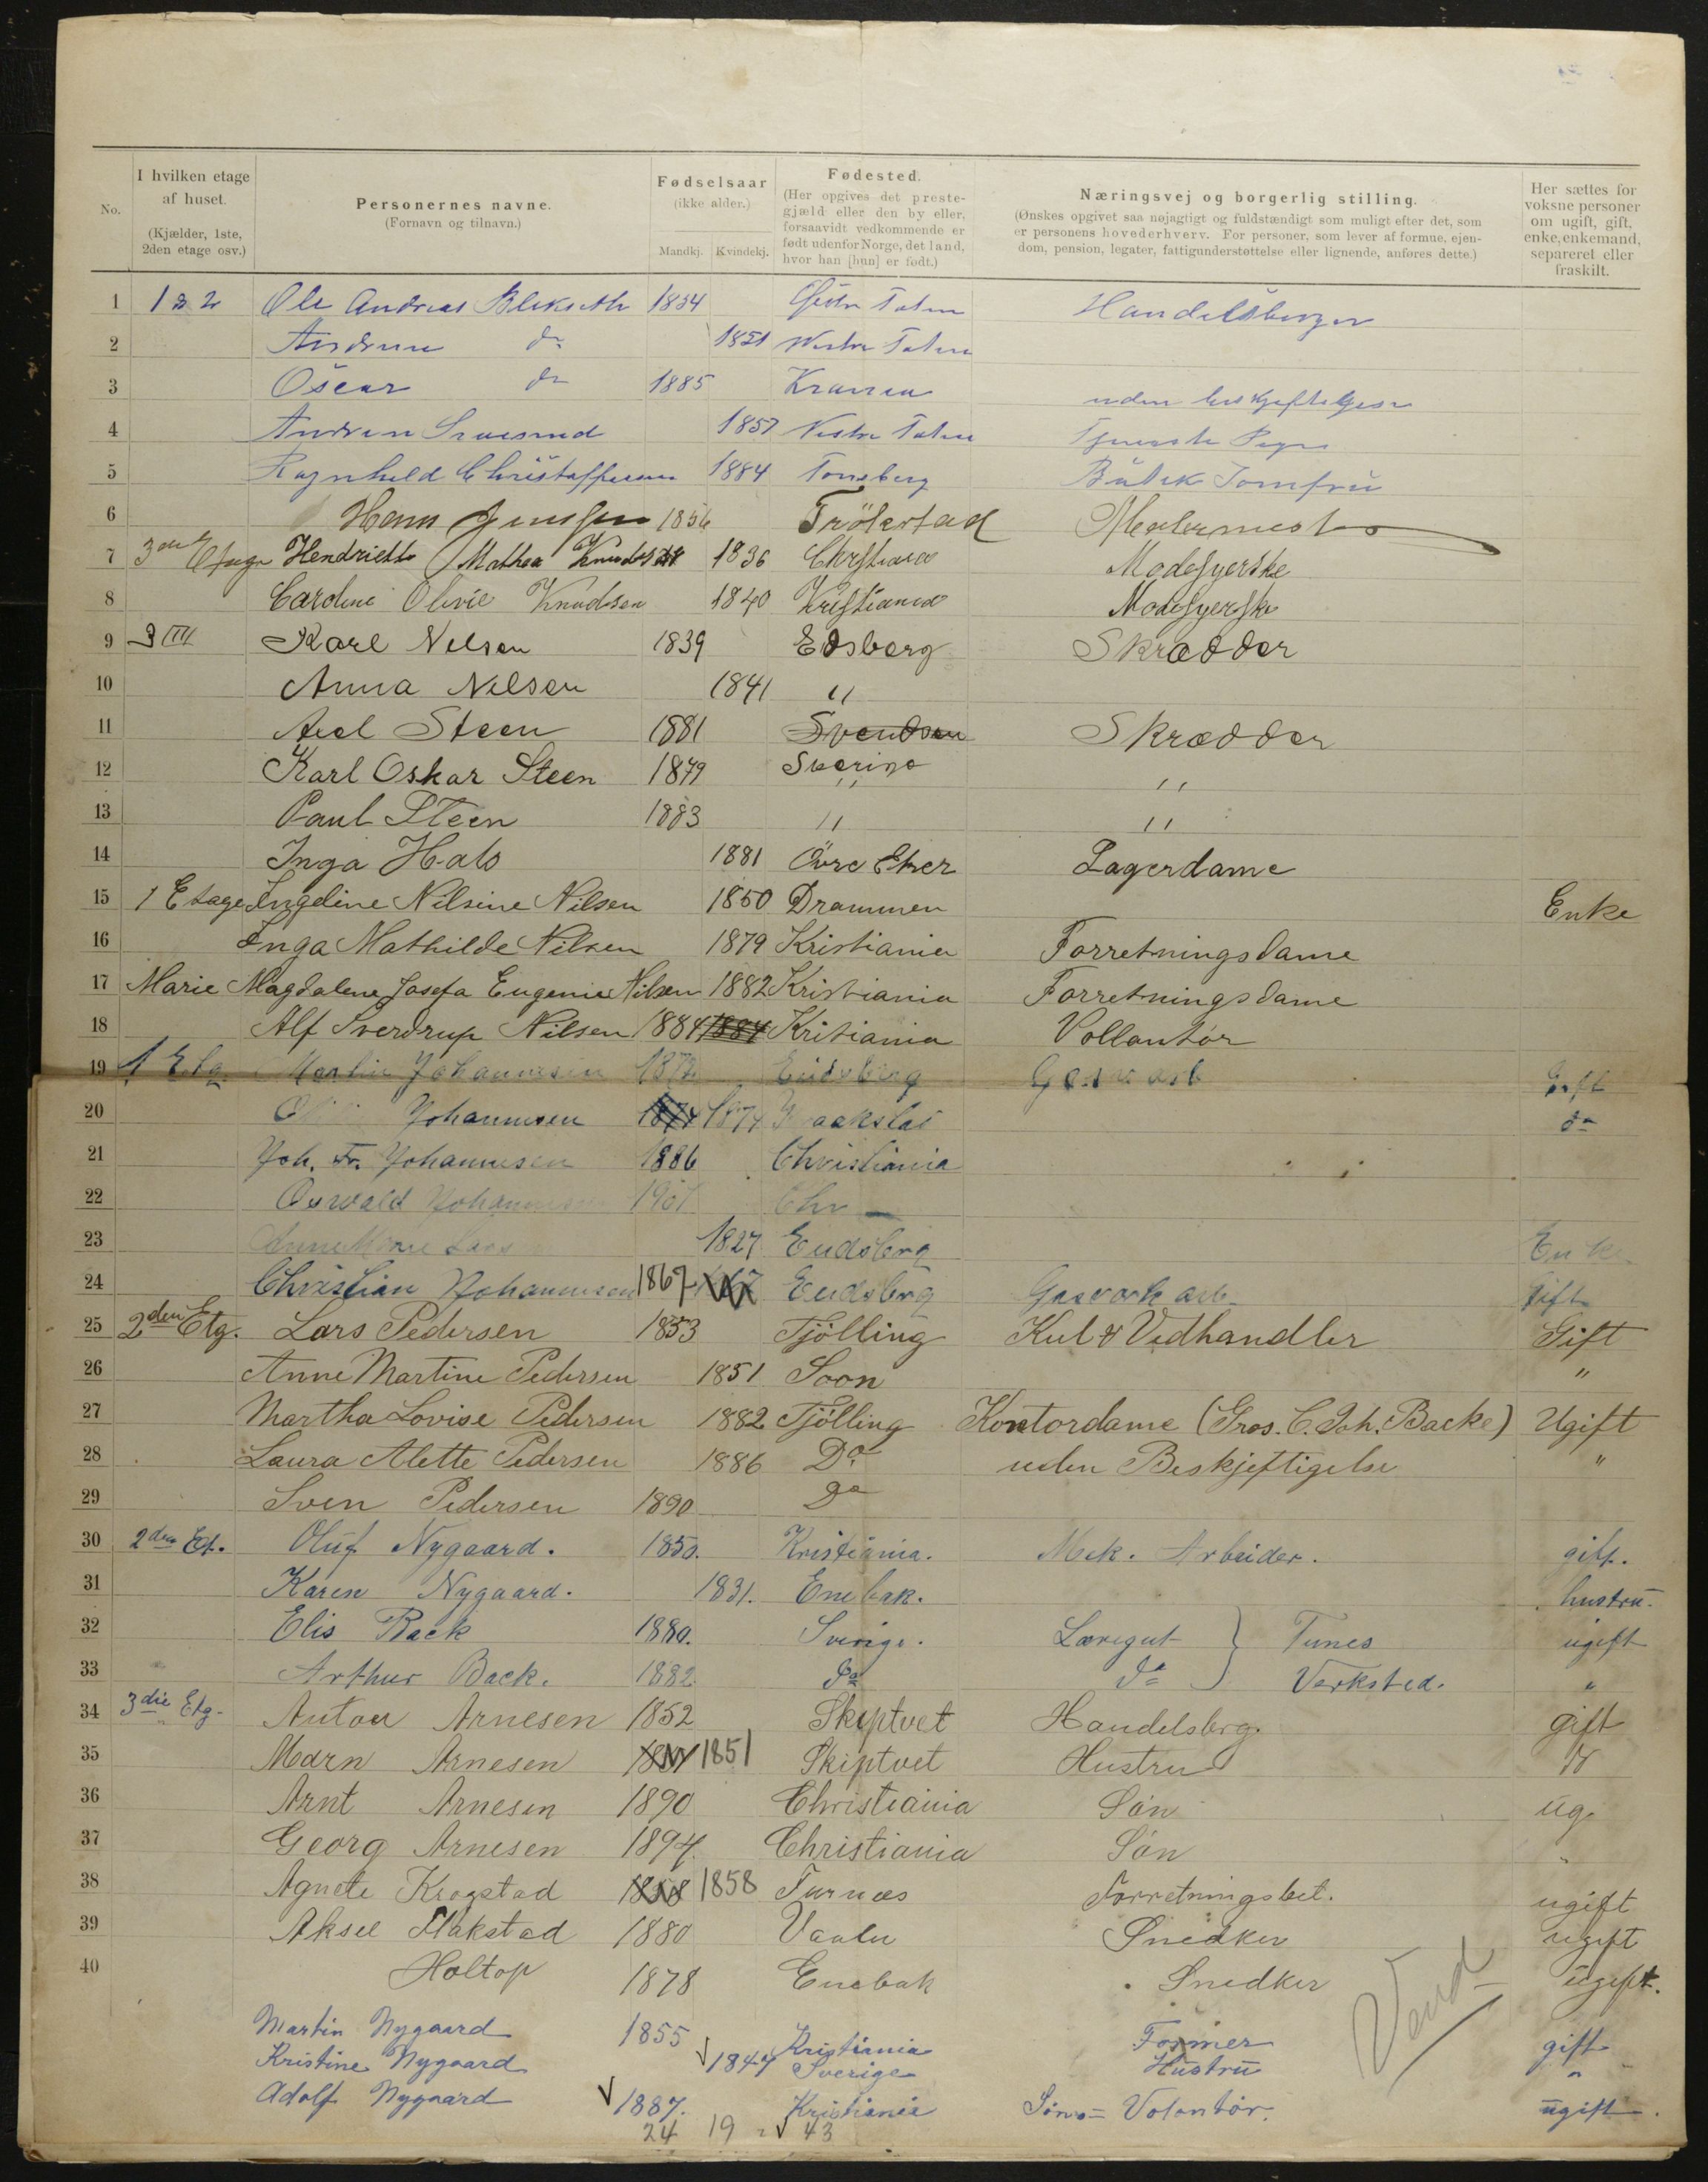 No.
I hvilken etage af huset. (Kjælder, 1ste, 2den etage osv.)
Personernes navne. (Fornavn og tilnavn.)
Fødselsaar (ikke alder.)
Mandkj. Kvindekj.
Fødested. (Her opgives det prestegjæld eller den by eller, forsaavidt vedkommende er født udenfor Norge, det land, hvor han [hun] er født.)
Næringsvej og borgerlig stilling. (Ønskes opgivet saa nøjagtigt og fuldstændigt som muligt efter det, som er personens hovederhverv. For personer, som lever af formue, ejendom, pension, legater, fattigunderstøttelse eller lignende, anføres dette.)
Her sættes for voksne personer om ugift, gift, enke, enkemand, separeret eller fraskilt.
1 Ole Andreas Blekseth 1854 Østre Toten Handelsborger
2 do 1851 Vestre Toten
3 Oscar do 1885 Krania uden
4 1857 Vestre Toten Tjeneste Pige
5 Ragnhild Christoffersen 1884 Tonsberg Butik Jomfru
6 Hans Jensen 1856 Trögstad Malermester
7 3die Etage Hendriette Mathea Knudsen 1836 Chrstiania Modesyerske
8 Caroline Olivie Knudsen 1840 Kristiania Modesyerske
9 3 III Karl Nilsen 1839 Edsberg Skrædder
10 Anna Nilsen 1841 "
11 Axel Steen 1881 Svendsen Skrædder
12 Karl Oskar Steen 1879 Sverige " "
13 Paul Steen 1883 " "
14 Inga Hals 1881 Övre Eker Lagerdame
15 1 Etage Ingeline Nilsine Nilsen 1850 Drammen Enke
16 Inga Mathilde Nilsen 1879 Kristiania Forretningsdame
17 Marie Magdalene Josefa Eugenie Nilsen 1882 Kristiania Forretningsdame
18 Alf Sverdrup Nilsen 1884 1884 Kritiania Vollantør
19 1 Etg Johannesen 1872 Eidsberg Gift
20 Johannesen 1874 1874 do
21 Joh. Fr. Johannesen 1886 Christiania
22 Oswald Johannesen Chr
23 Anne Marie 1827 Eudsberg Enke
24 Christian Johannesen 1867 Eudsberg Gasverk arb. Gift
25 2den Etg. Lars Pedersen 1853 Tjölling Kul & Vedhandler Gift
26 Anne Martine Pedersen 1851 Soon "
27 Martha Lovise Pedersen 1882 Tjölling Kontordame (Gros. C. Joh. Backe) Ugift
28 Laura Alette Pedersen 1886 Do uden Beskjeftigelse "
29 Sven Pedersen 1890 Do
30 2den Et. Oluf Nygaard. 1850. Kristiania. Mek. Arbeider. gift.
31 Karen Nygaard. 1831. Enebak. hustru.
32 Elis Back 1880. Sverige. Læregut } Tunes ugift
33 Arthur Back. 1882 do do } Verksted. "
34 3die Etg. Anton Arnesen 1852 Skiptvet Handelsbrg. gift
35 Marn Arnesen 1851 Skiptvet Hustru
36 Arnt Arnesen 1890 Christiania Søn ug.
37 Georg Arnesen 1894 Christiania Søn "
38 Agnete Krogstad 1858 1858 Furnæs Forretningsbet. ugift
39 Aksel Flakstad 1880 Vaaler Snedker ugift
40 Holtop 1878 Enebak Snedker ugift.
Martin Nygaard 1855 Kristiania Former gift
Kristine Nygaard 1844 Sverige Hustru "
Adolf Nygaard 1887. Kristiania Søn Volontör. ugift.
Vend
24 19 = 43